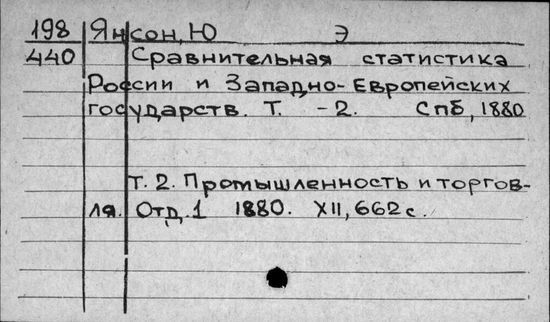 198 Янсон, Ю Э
440 Сравнительная статистика
России и Западно-Европейских
государств. Т. -2. Спб, 1880
Т. 2. Промышленность и торгов-
ля. Отд. 1 1880. XII, 662 с.